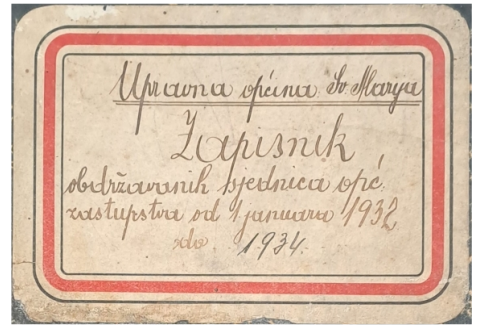 Upravna općina Sv. Marija
Zapisnik
obdržavanih sjednica opć.
zastupstva od 1 januara 1932
do 1934.